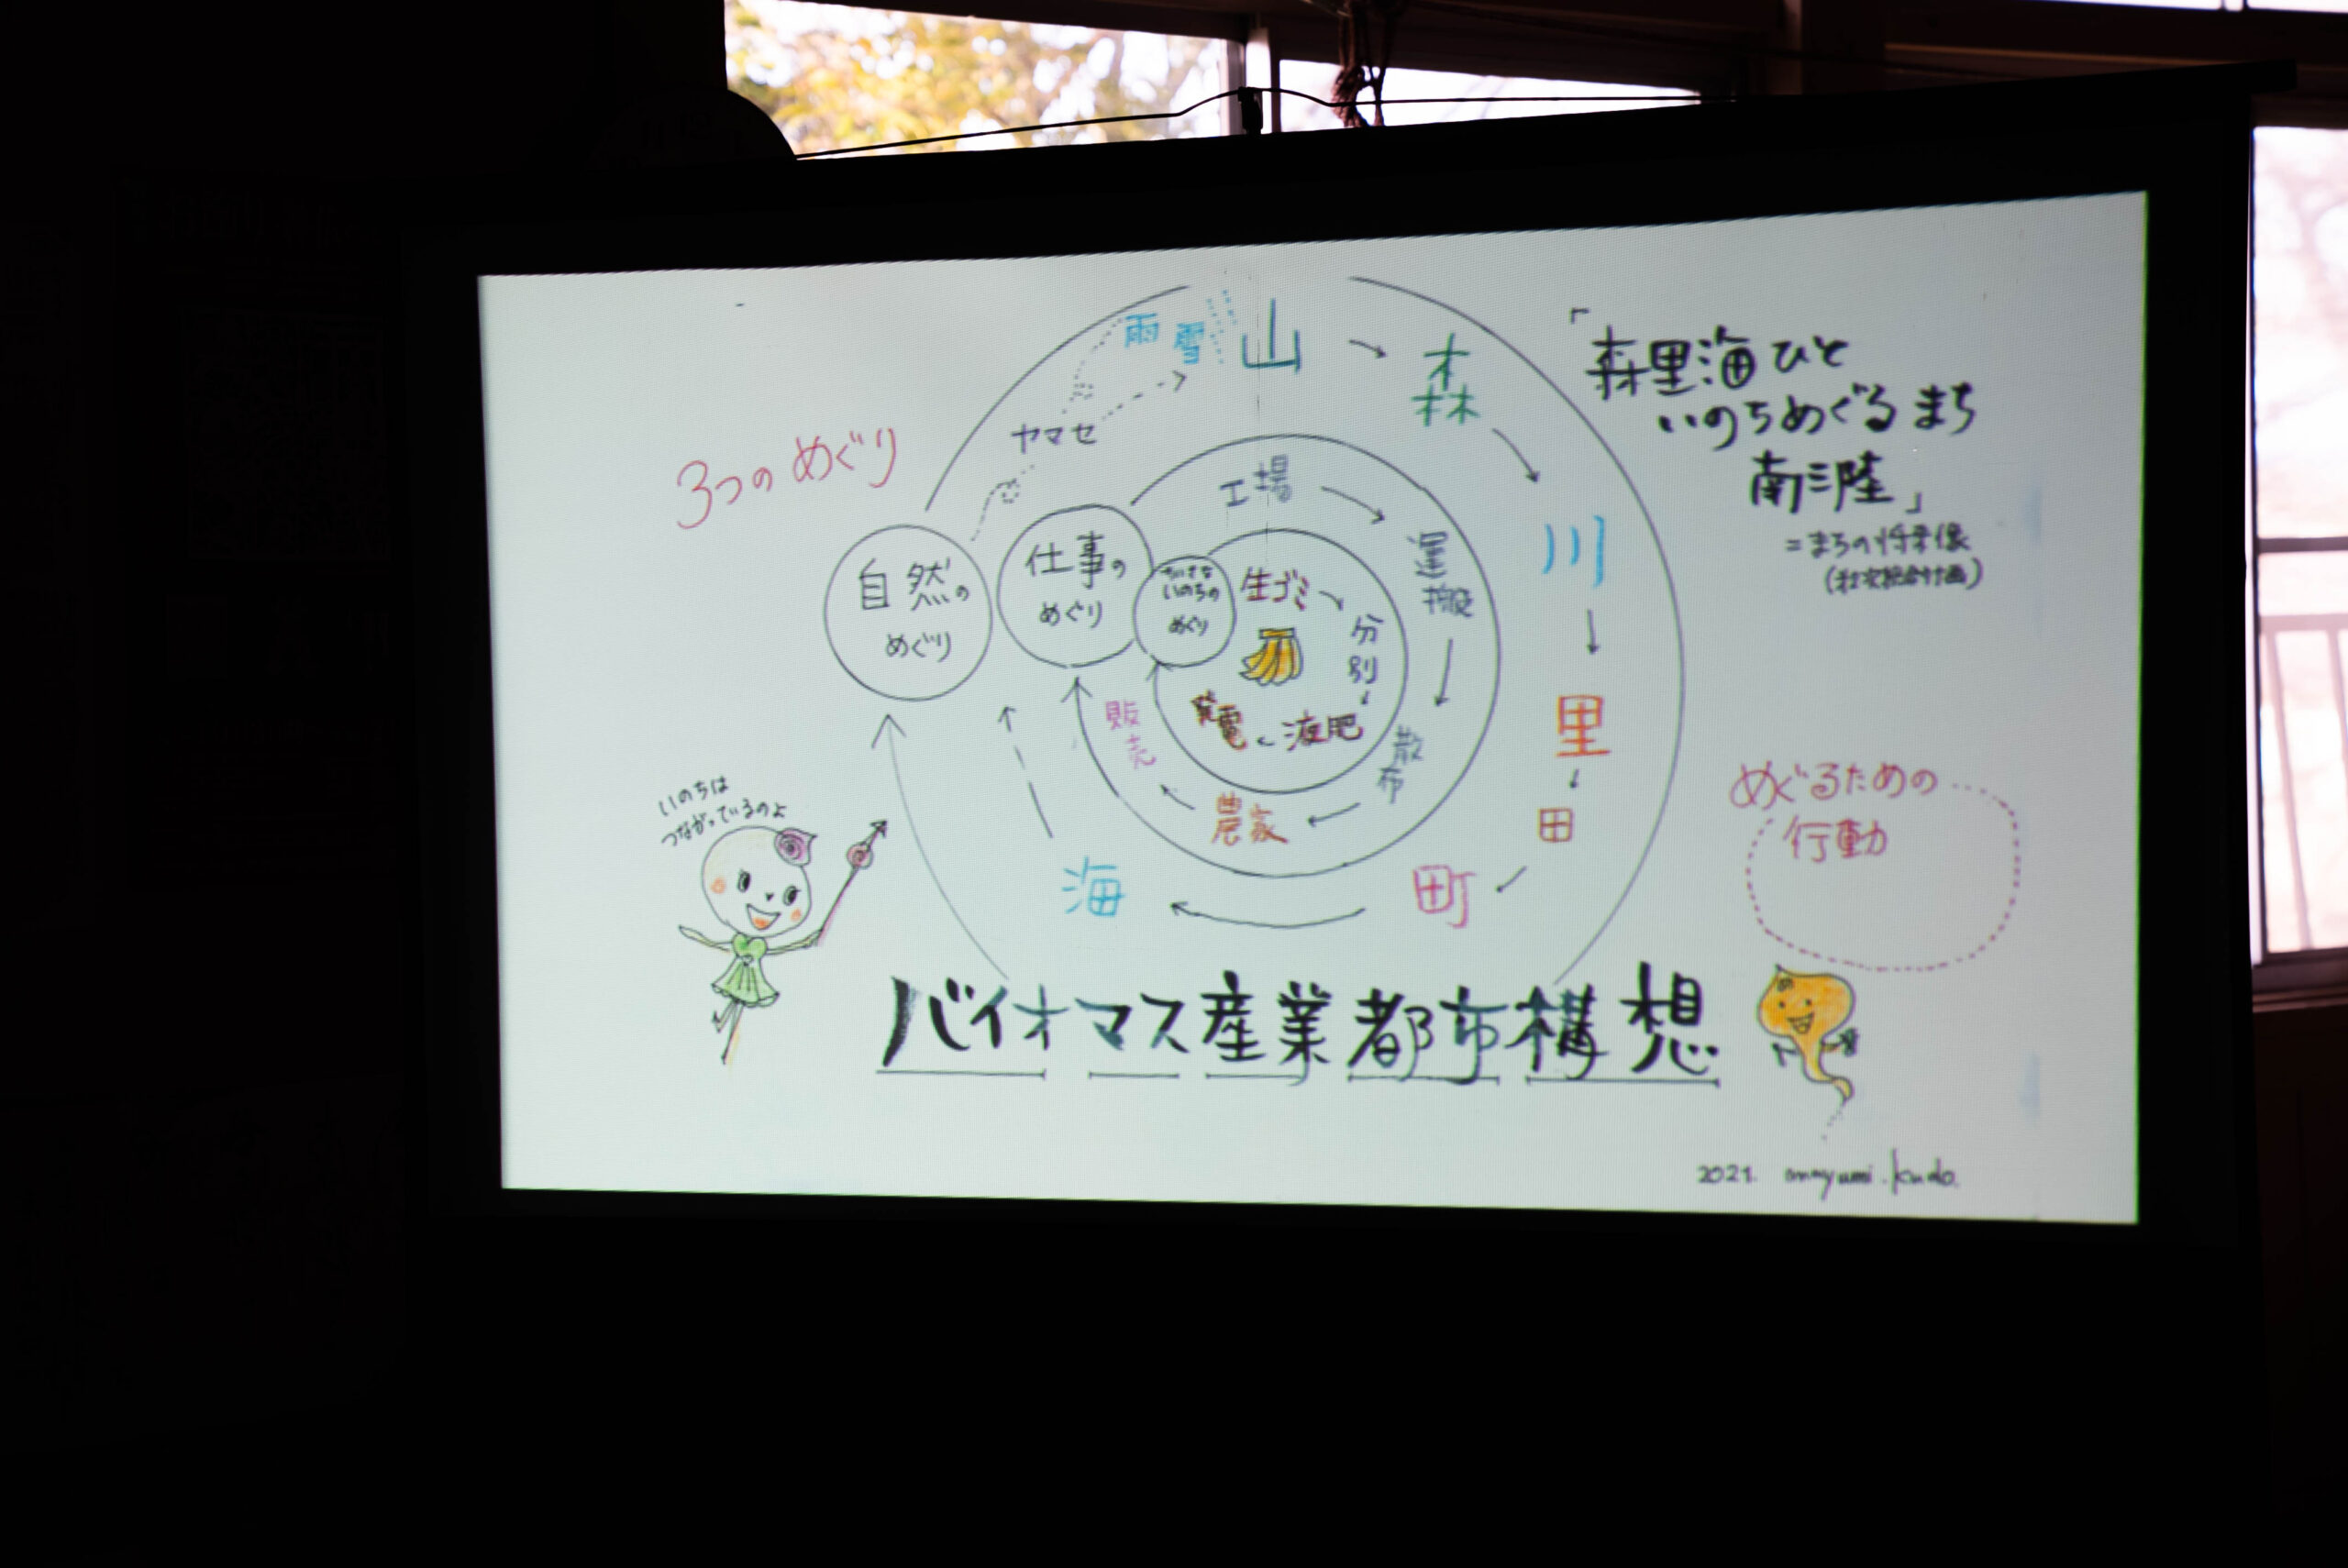 3つのめぐり
雨 雪
山
森
川
里
田
町
海
ヤマセ
自然の
めぐり
仕事の
めぐり
ちいさな
いのちの
めぐり
工場
運搬
散布
農家
販売
生ゴミ
分別
液肥
発電
「森里海ひと
いのちめぐるまち
南三陸」
=まちの将来像
めぐるための
行動
いのちは
つながっているのよ
バイオマス産業都市構想
2021. mayumi.kudo.